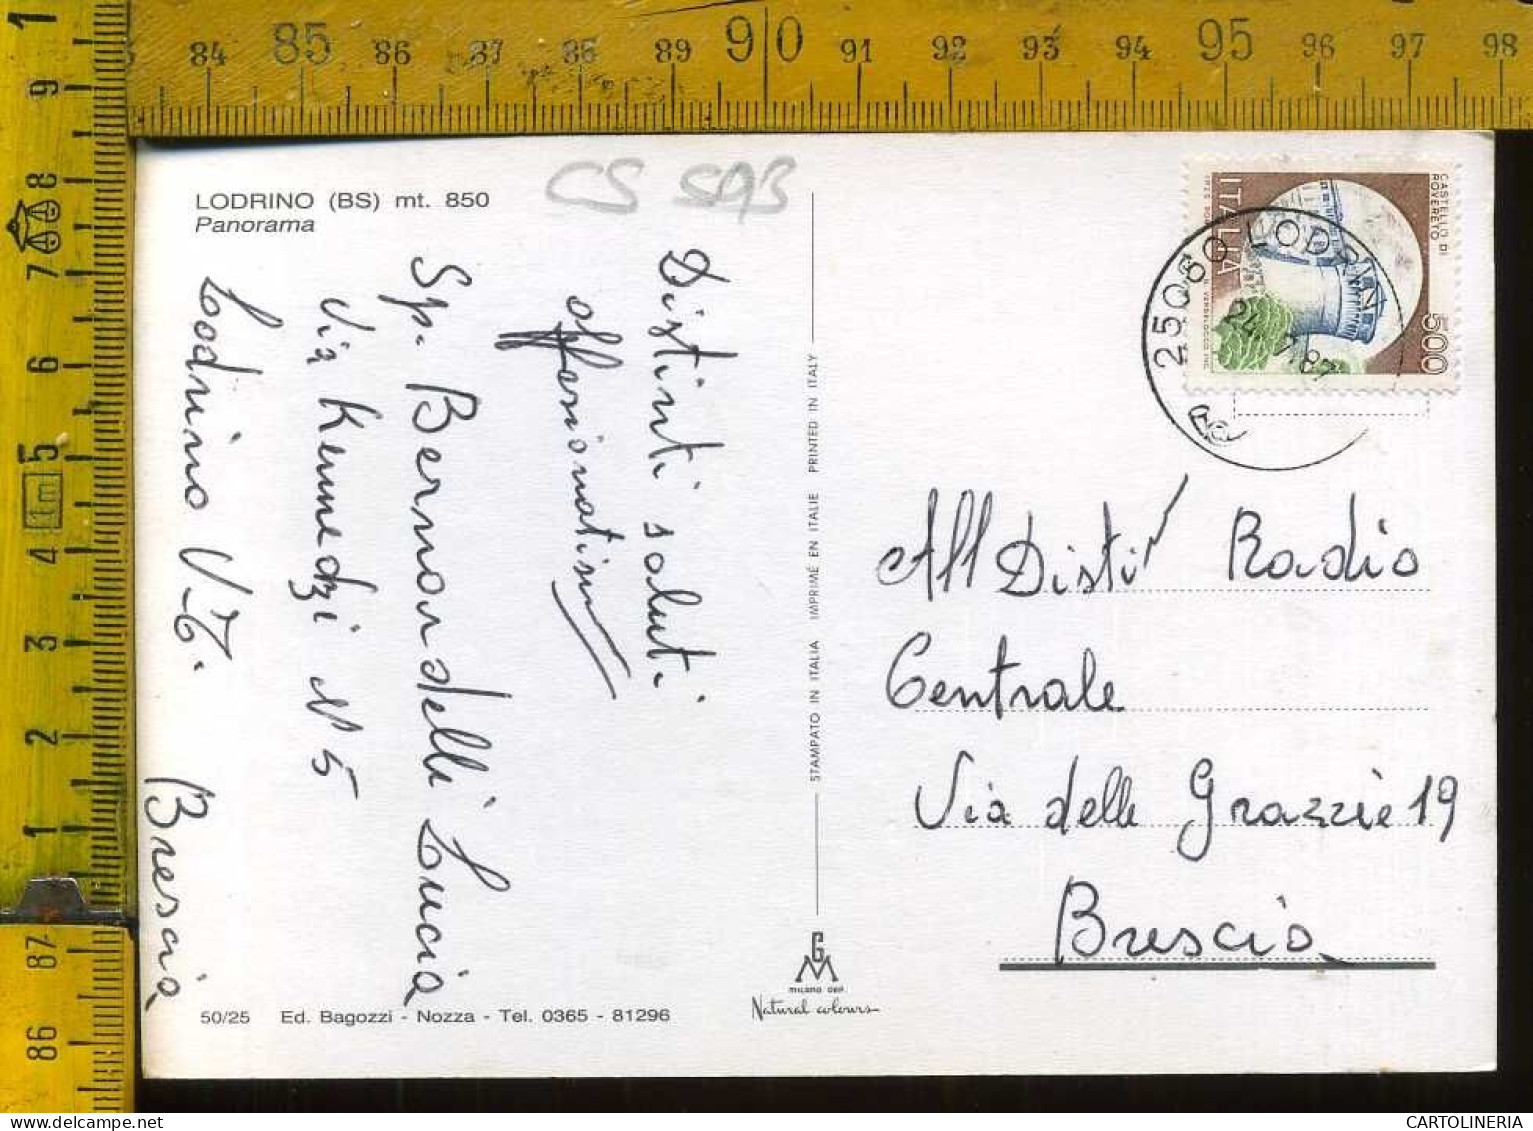 LODRINO (BS) mt. 850
Panorama
CS SAB
Distinti saluti
affesionatissimi
Sp. Bernardelli Lucia
Via Kennedzi N° 5
Lodrino V.T.
Brescia
50/25 Ed. Bagozzi - Nozza - Tel. 0365 - 81296
STAMPATO IN ITALIA IMPRIMÉ EN ITALIE PRINTED IN ITALY
GM
MILANO DEP.
Natural colours
CASTELLO DI
ROVERETO
ITALIA
500
25060 LODRINO
All Disti Radio
Centrale
Via delle Grazzie 19
Brescia
83 84 85 86 87 88 89 90 91 92 93 94 95 96 97 98
1 9 8 7 6 5 4 3 2 1 87 86
1m
CARTOLINERIA